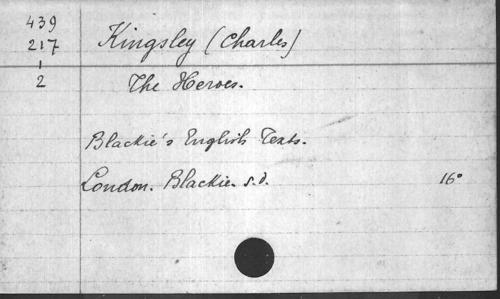 439
217 Kingsley (Charles)
1
2 The Heroes.
Blackie's English Texts.
London. Blackie. s.d. 16°